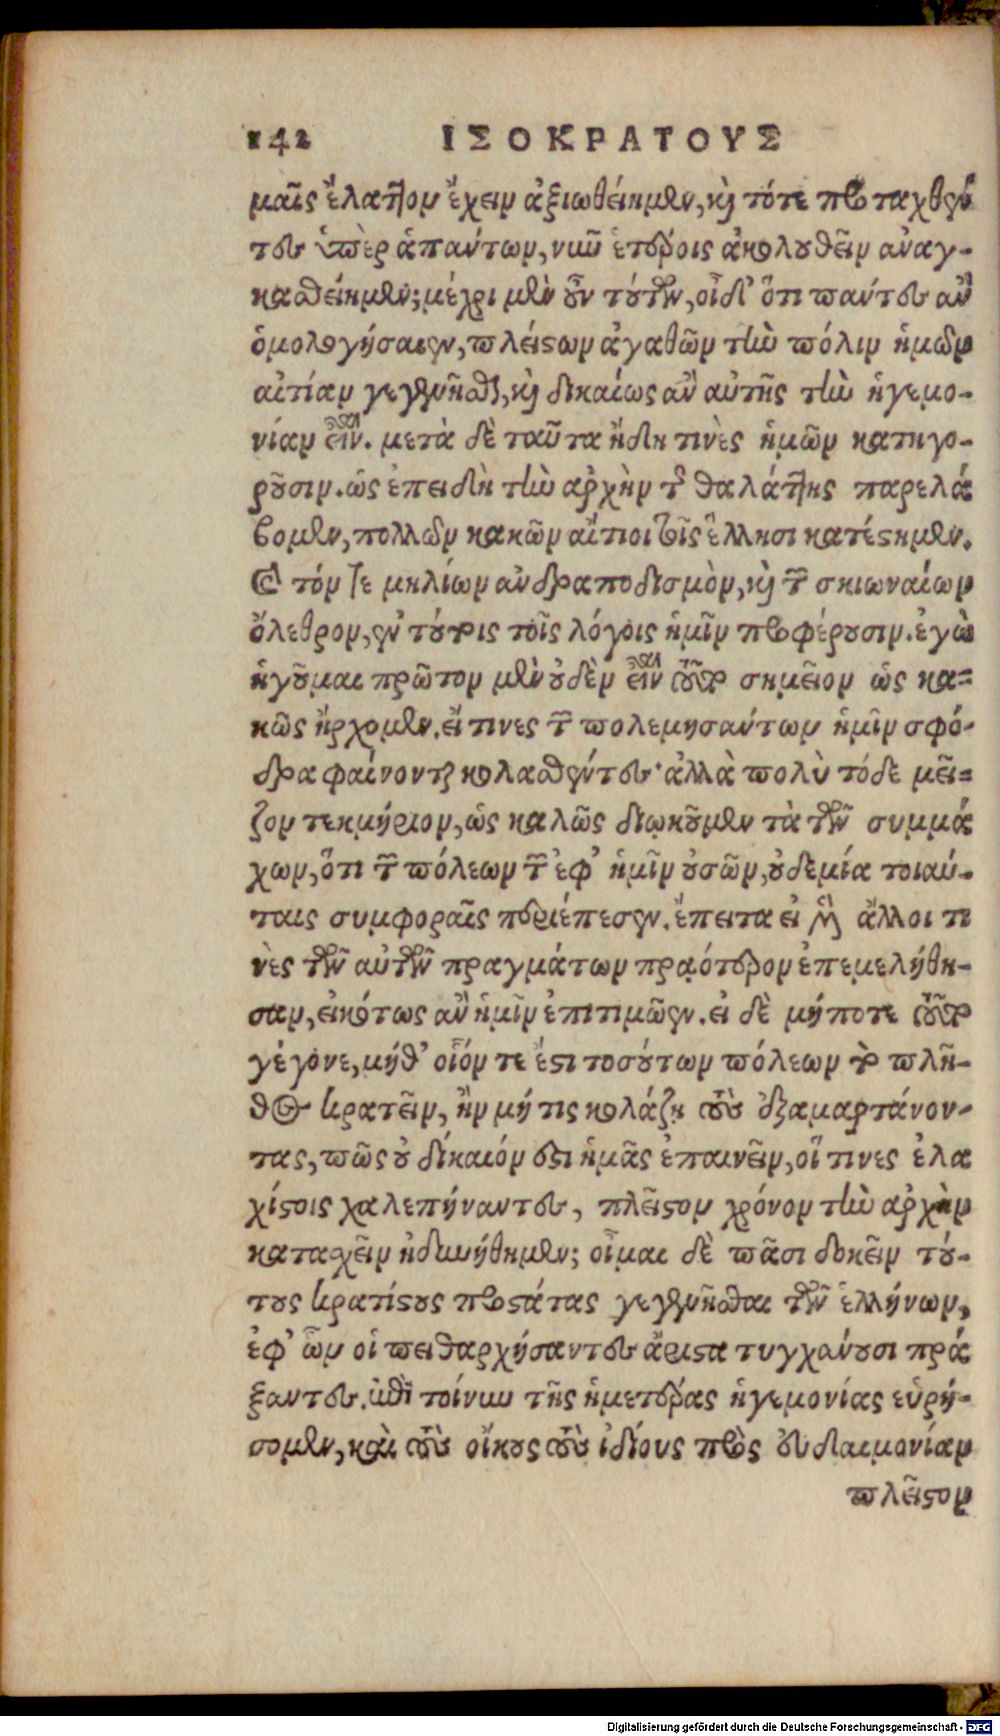 142 ΙΣΟΚΡΑΤΟΥΣ
μαῖς ἔλαττον ἔχειν ἀξιωθείημεν, καὶ τότε προταχθέν
τες ὑπὲρ ἁπάντων, νῦν ἑτέροις ἀκολουθεῖν ἀναγ-
καθείημεν; μέχρι μὲν οὖν τούτων, οἶδ' ὅτι πάντες ἂν
ὁμολογήσαιεν, πλείστων ἀγαθῶν τὴν πόλιν ἡμῶν
αἰτίαν γεγενῆσθαι, καὶ δικαίως ἂν αὐτῆς τὴν ἡγεμο-
νίαν εἶναι. μετὰ δὲ ταῦτα ἤδη τινὲς ἡμῶν κατηγο-
ροῦσιν. ὡς ἐπειδὴ τὴν ἀρχὴν τῆς θαλάττης παρελά
βομεν, πολλῶν κακῶν αἴτιοι τοῖς ἕλλησι κατέστημεν.
καὶ τόν τε μηλίων ἀνδραποδισμὸν, καὶ τῶν σκιωναίων
ὄλεθρον, ἐν τούτοις τοῖς λόγοις ἡμῖν προφέρουσιν. ἐγὼ
ἡγοῦμαι πρῶτον μὲν οὐδὲν εἶναι τοῦτο σημεῖον ὡς κα-
κῶς ἤρχομεν. εἴ τινες τῶν πολεμησάντων ἡμῖν σφό-
δρα φαίνονται κολασθέντες· ἀλλὰ πολὺ τόδε μεῖ-
ζον τεκμήριον, ὡς καλῶς διῳκοῦμεν τὰ τῶν συμμά
χων, ὅτι τῶν πόλεων τῶν ἐφ' ἡμῖν οὐσῶν, οὐδεμία τοιαύ-
ταις συμφοραῖς περιέπεσεν. ἔπειτα εἰ μὴ ἄλλοι τι
νὲς τῶν αὐτῶν πραγμάτων πραότερον ἐπεμελήθη-
σαν, εἰκότως ἂν ἡμῖν ἐπιτιμῶεν. εἰ δὲ μήποτε τοῦτο
γέγονε, μήθ' οἷόν τε ἐστι τοσούτων πόλεων τὸ πλῆ-
θος κρατεῖν, ἢν μή τις κολάζῃ τοὺς ἐξαμαρτάνον-
τας, πῶς οὐ δίκαιόν ἐστι ἡμᾶς ἐπαινεῖν, οἵ τινες ἐλα
χίστοις χαλεπήναντες, πλεῖστον χρόνον τὴν ἀρχὴν
κατασχεῖν ἠδυνήθημεν; οἶμαι δὲ πᾶσι δοκεῖν τού-
τους κρατίστους προστάτας γεγενῆσθαι τῶν ἑλλήνων,
ἐφ' ὧν οἱ πειθαρχήσαντες ἄριστα τυγχάνουσι πρά
ξαντες. ἐπὶ τοίνυν τῆς ἡμετέρας ἡγεμονίας εὑρή-
σομεν, καὶ τοὺς οἴκους τοὺς ἰδίους πρὸς εὐδαιμονίαν
πλεῖστον
Digitalisierung gefördert durch die Deutsche Forschungsgemeinschaft - DFG